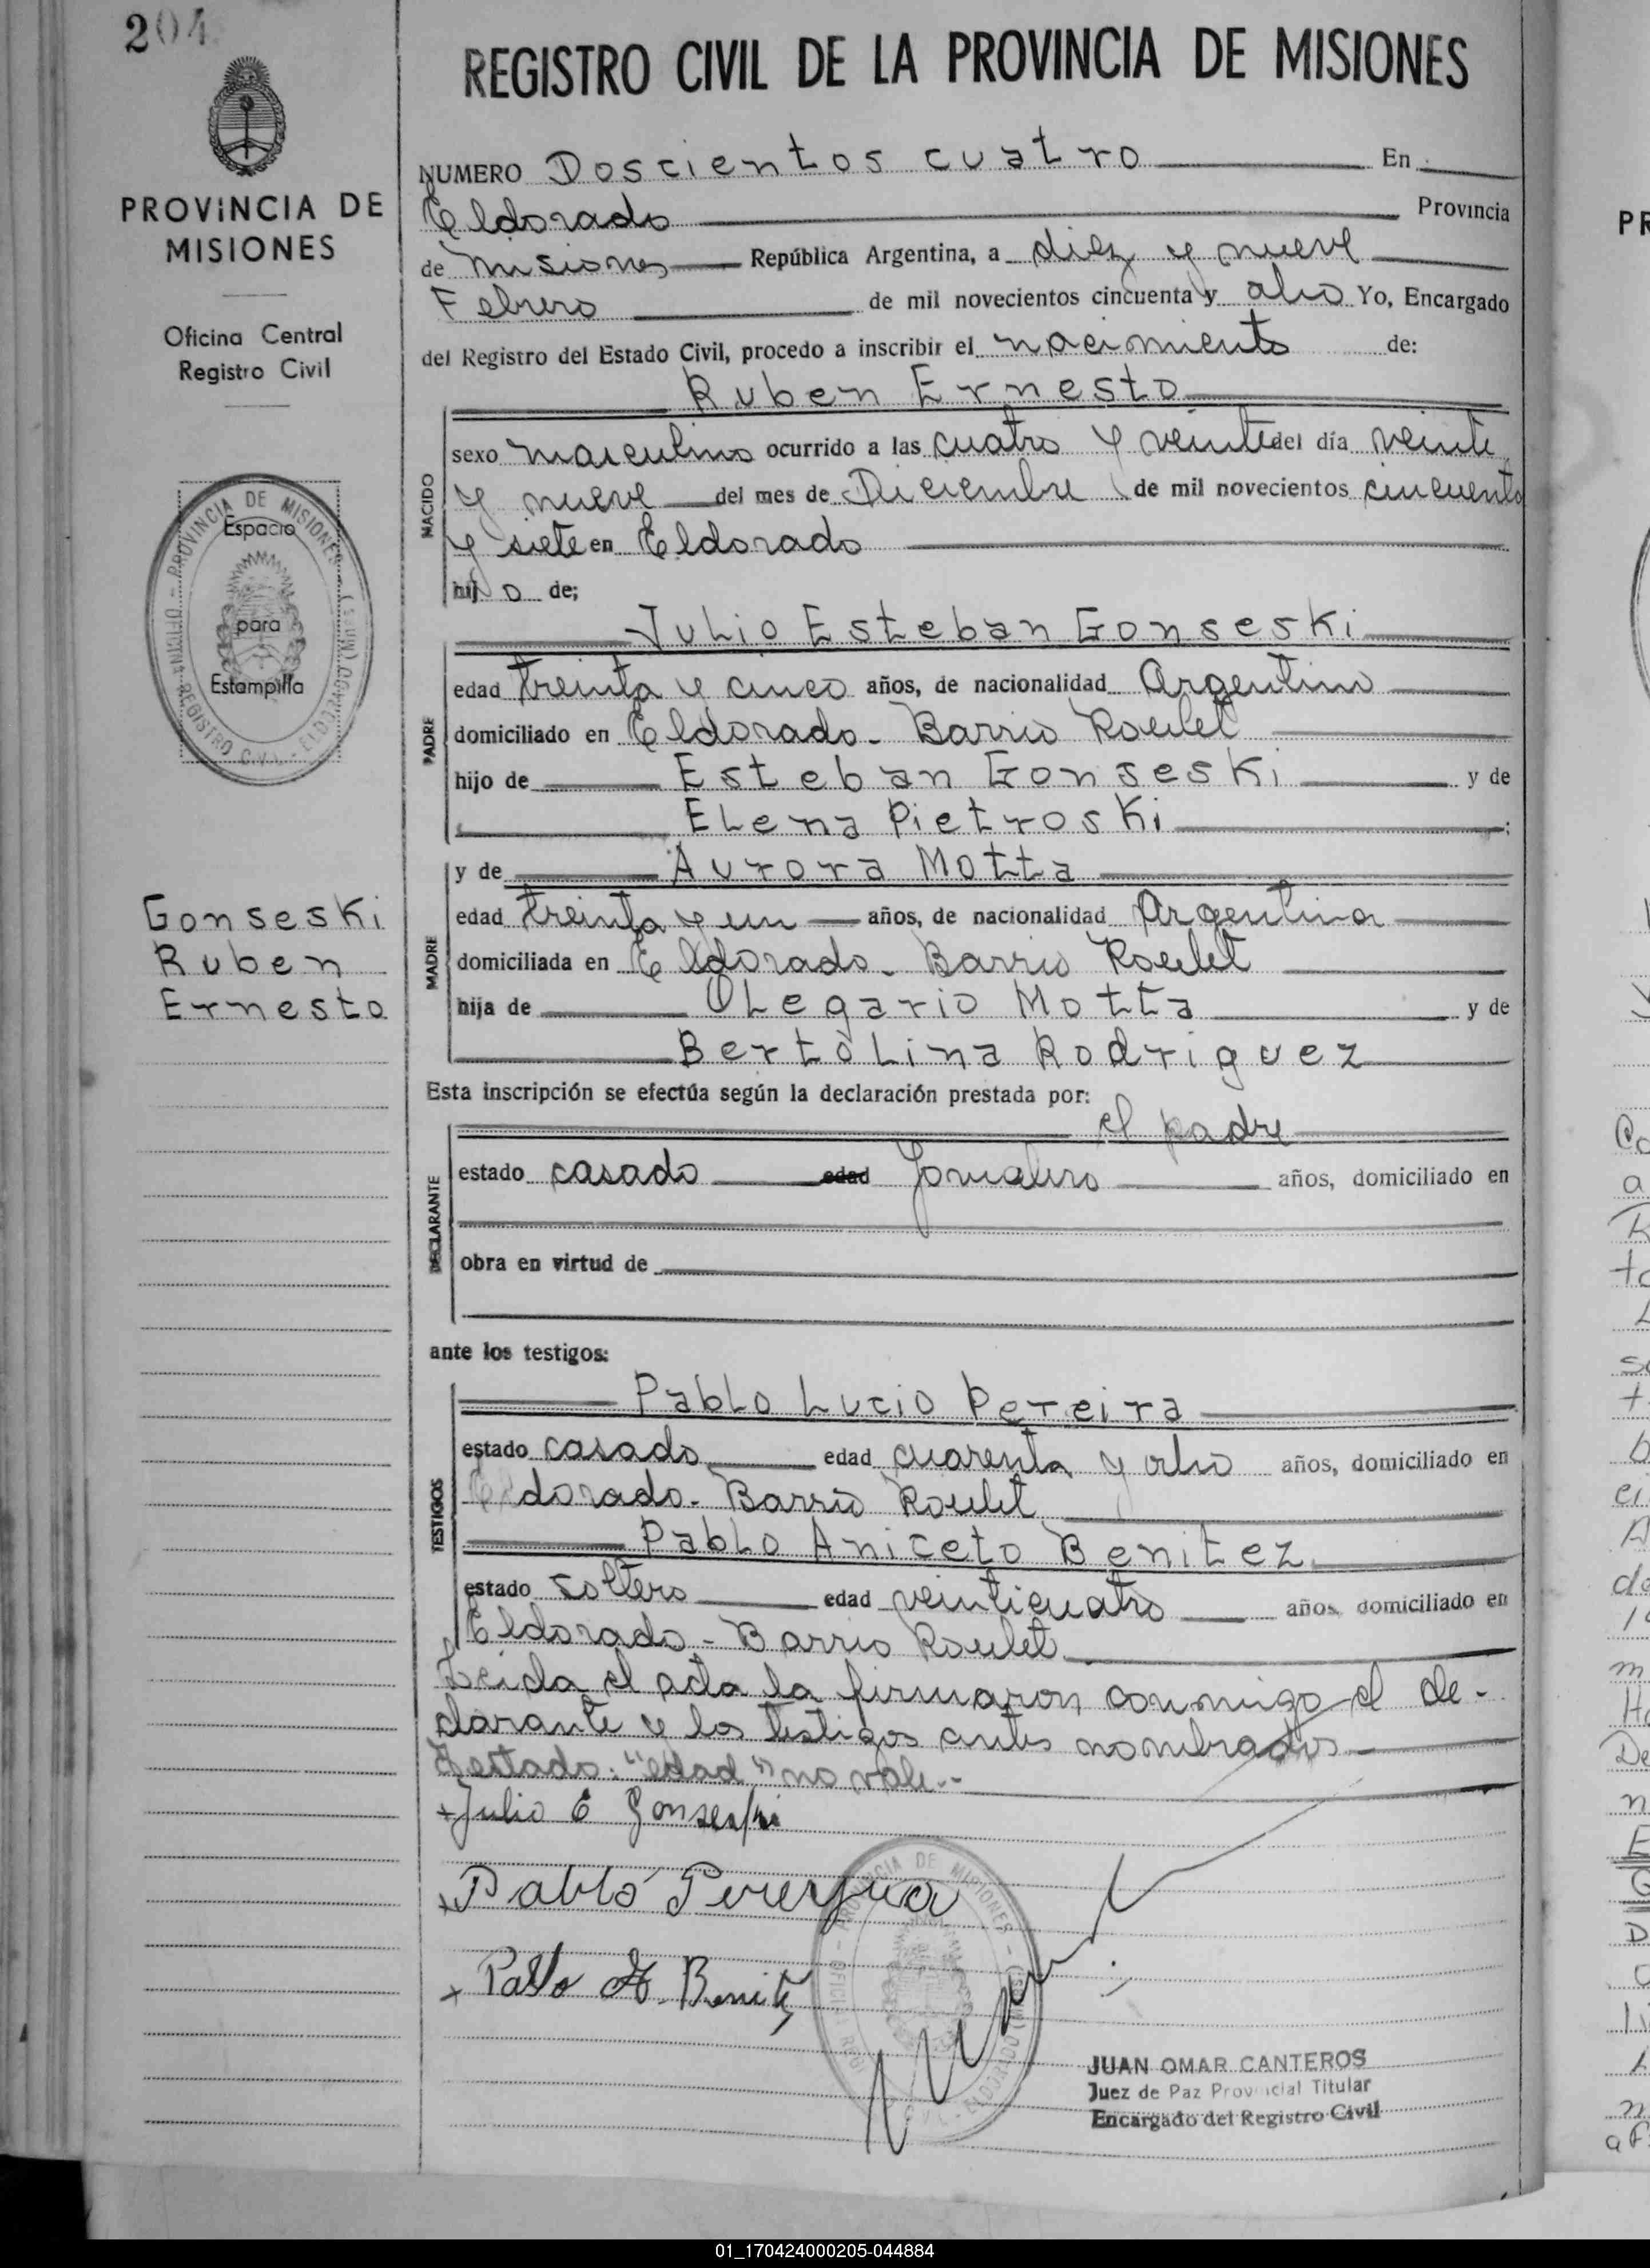 204
REGISTRO CIVIL DE LA PROVINCIA DE MISIONES
PROVINCIA DE
MISIONES
Oficina Central
Registro Civil
PROVINCIA DE MISIONES
Espacio
para
Estampilla
REGISTRO CIVIL - ELDORADO
Gonseski
Ruben
Ernesto
NUMERO Doscientos cuatro En
Eldorado Provincia
de Misiones República Argentina, a diez y nueve
Febrero de mil novecientos cincuenta y ocho Yo, Encargado
del Registro del Estado Civil, procedo a inscribir el nacimiento de:
Ruben Ernesto
NACIDO
sexo masculino ocurrido a las cuatro y veinte del día veinte
y nueve del mes de Diciembre de mil novecientos cincuenta
y siete en Eldorado
hijo de;
Julio Esteban Gonseski
PADRE
edad treinta y cinco años, de nacionalidad Argentino
domiciliado en Eldorado - Barrio Roulet
hijo de Esteban Gonseski y de
Elena Pietroski ;
y de Aurora Motta
MADRE
edad treinta y un años, de nacionalidad Argentina
domiciliada en Eldorado - Barrio Roulet
hija de Olegario Motta y de
Bertolina Rodriguez
Esta inscripción se efectúa según la declaración prestada por:
el padre
DECLARANTE
estado casado edad Jornalero años, domiciliado en
obra en virtud de
ante los testigos:
Pablo Lucio Pereira
TESTIGOS
estado casado edad cuarenta y ocho años, domiciliado en
Eldorado - Barrio Roulet
Pablo Aniceto Benitez
estado soltero edad veinticuatro años, domiciliado en
Eldorado - Barrio Roulet
Leida el acta la firmaron conmigo el de-
clarante y los testigos antes nombrados
Testado: "edad" no vale.-
Julio E Gonseski
Pablo
Pablo A. Benitez
PROVINCIA DE MISIONES
JUAN OMAR CANTEROS
Juez de Paz Provincial Titular
Encargado del Registro Civil
01_170424000205-044884